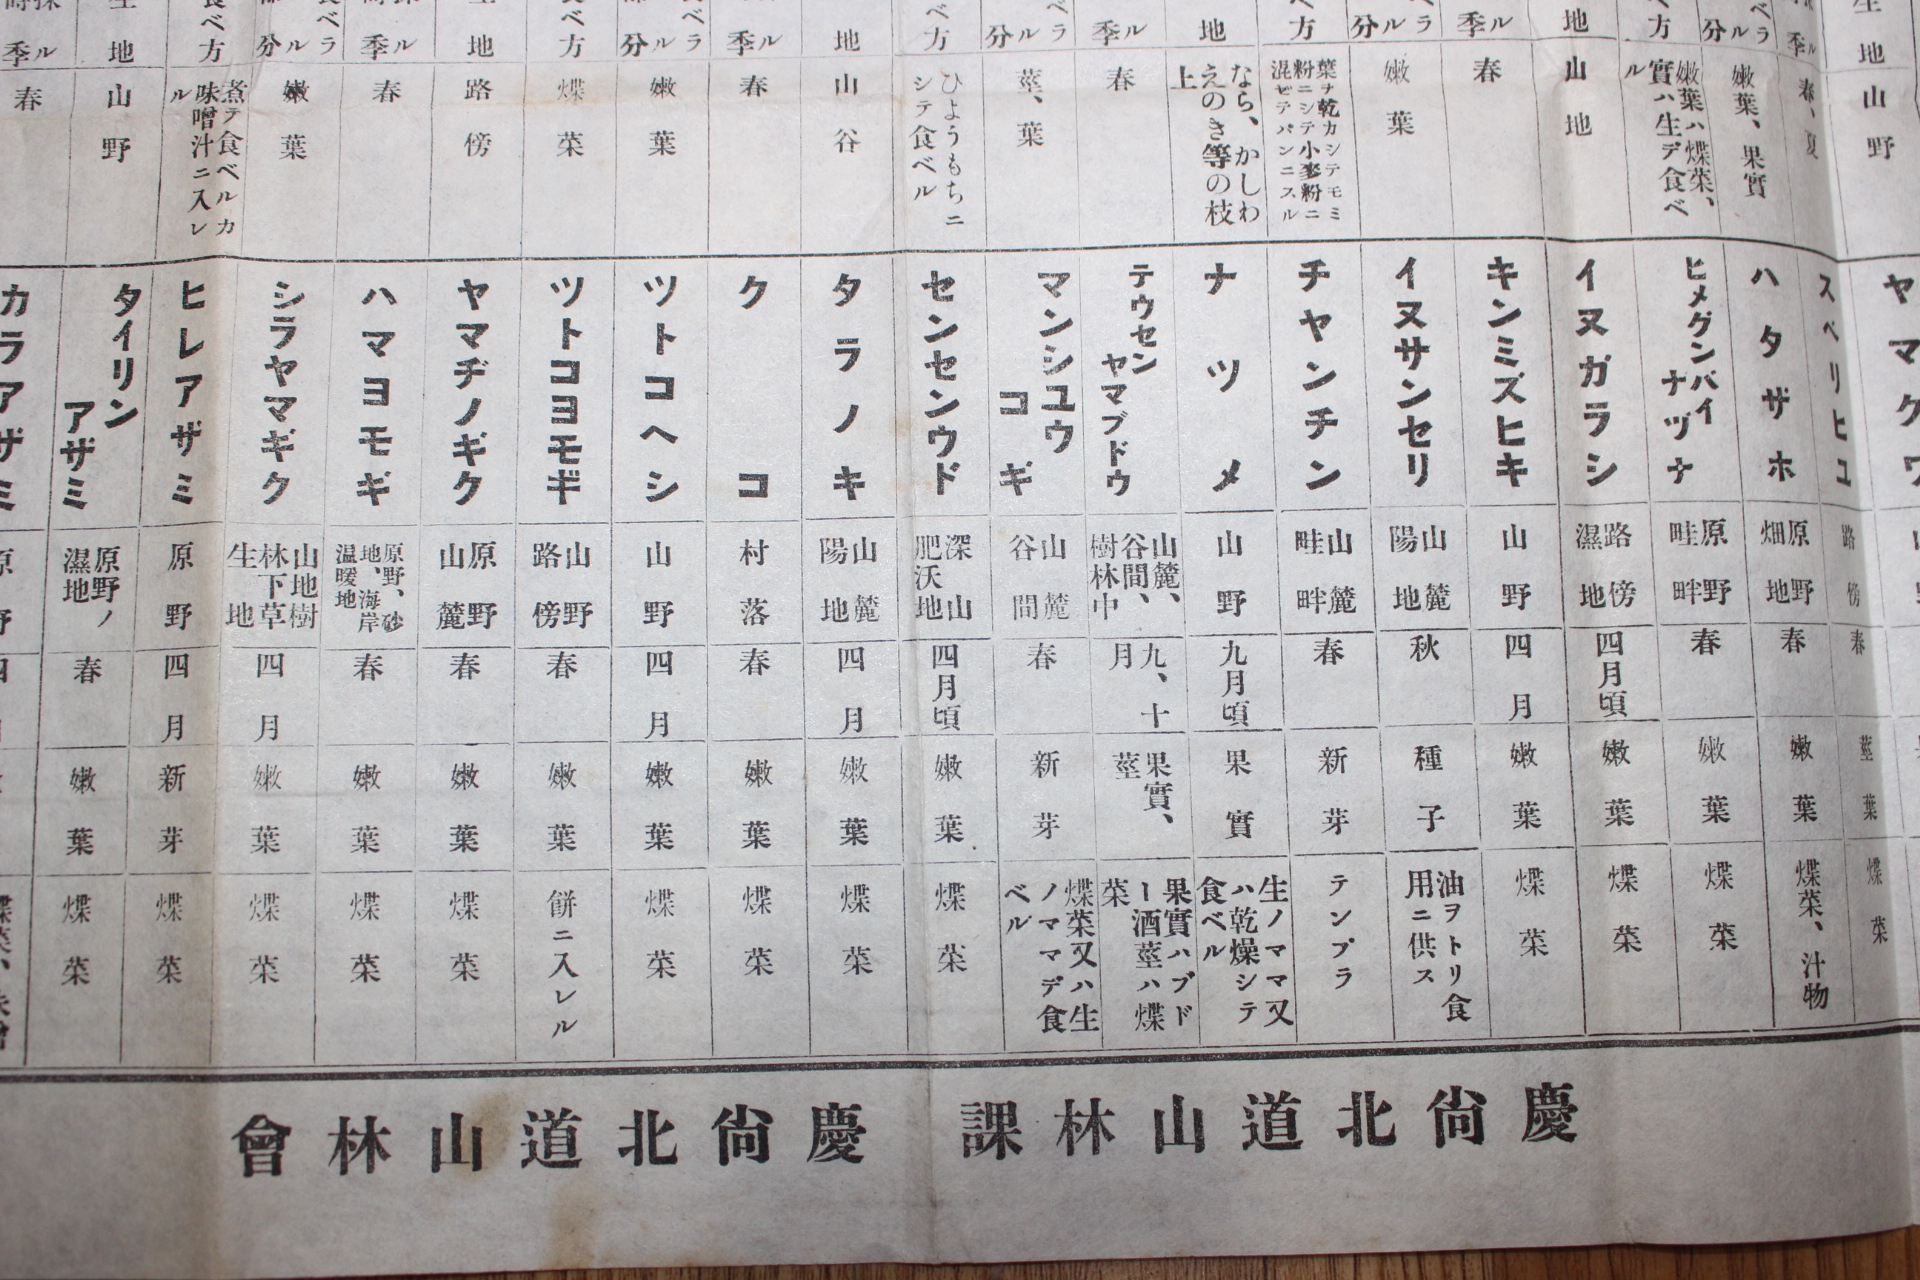 生地 山野
季ル 春、夏
分ルベラ 嫩葉、果實
方 嫩葉ハ煠菜、實ハ生デ食ベル
地 山地
季ル 春
分ルベラ 嫩葉
方 葉ヲ乾カシテモミ粉ニシテ小麥粉ニ混ゼテパンニスル
地 なら、かしわえのき等の枝上
季ル 春
分ルベラ 莖、葉
ベ方 ひようもちニシテ食ベル
地 山谷
季ル 春
分ルベラ 嫩葉
ベ方 煠菜
地 路傍
季ル 春
分ルベラ 嫩葉
食ベ方 煮テ食ベルカ味噌汁ニ入レル
生地 山野
季ル 春
ヤマクワ
スベリヒユ 路傍 春 莖葉 煠菜
ハタザホ 原野畑地 春 嫩葉 煠菜、汁物
ヒメグンバイナヅナ 原野畦畔 春 嫩葉 煠菜
イヌガラシ 路傍濕地 四月頃 嫩葉 煠菜
キンミズヒキ 山野 四月 嫩葉 煠菜
イヌサンセリ 山麓陽地 秋 種子 油ヲトリ食用ニ供ス
チヤンチン 山麓畦畔 春 新芽 テンプラ
ナツメ 山野 九月頃 果實 生ノママ又ハ乾燥シテ食ベル
テウセンヤマブドウ 山麓、谷間、樹林中 九、十月 果實、莖 果實ハブドー酒莖ハ煠菜
マンシユウコギ 山麓谷間 春 新芽 煠菜又ハ生ノママデ食ベル
センセンウド 深山肥沃地 四月頃 嫩葉 煠菜
タラノキ 山麓陽地 四月 嫩葉 煠菜
クコ 村落 春 嫩葉 煠菜
ツトコヘシ 山野 四月 嫩葉 煠菜
ツトコヨモギ 山野路傍 春 嫩葉 餅ニ入レル
ヤマヂノギク 原野山麓 春 嫩葉 煠菜
ハマヨモギ 原野、砂地、海岸温暖地 春 嫩葉 煠菜
シラヤマギク 山地樹林下草生地 四月 嫩葉 煠菜
ヒレアザミ 原野 四月 新芽 煠菜
タイリンアザミ 原野ノ濕地 春 嫩葉 煠菜
カラアザミ
慶尙北道山林課
慶尙北道山林會